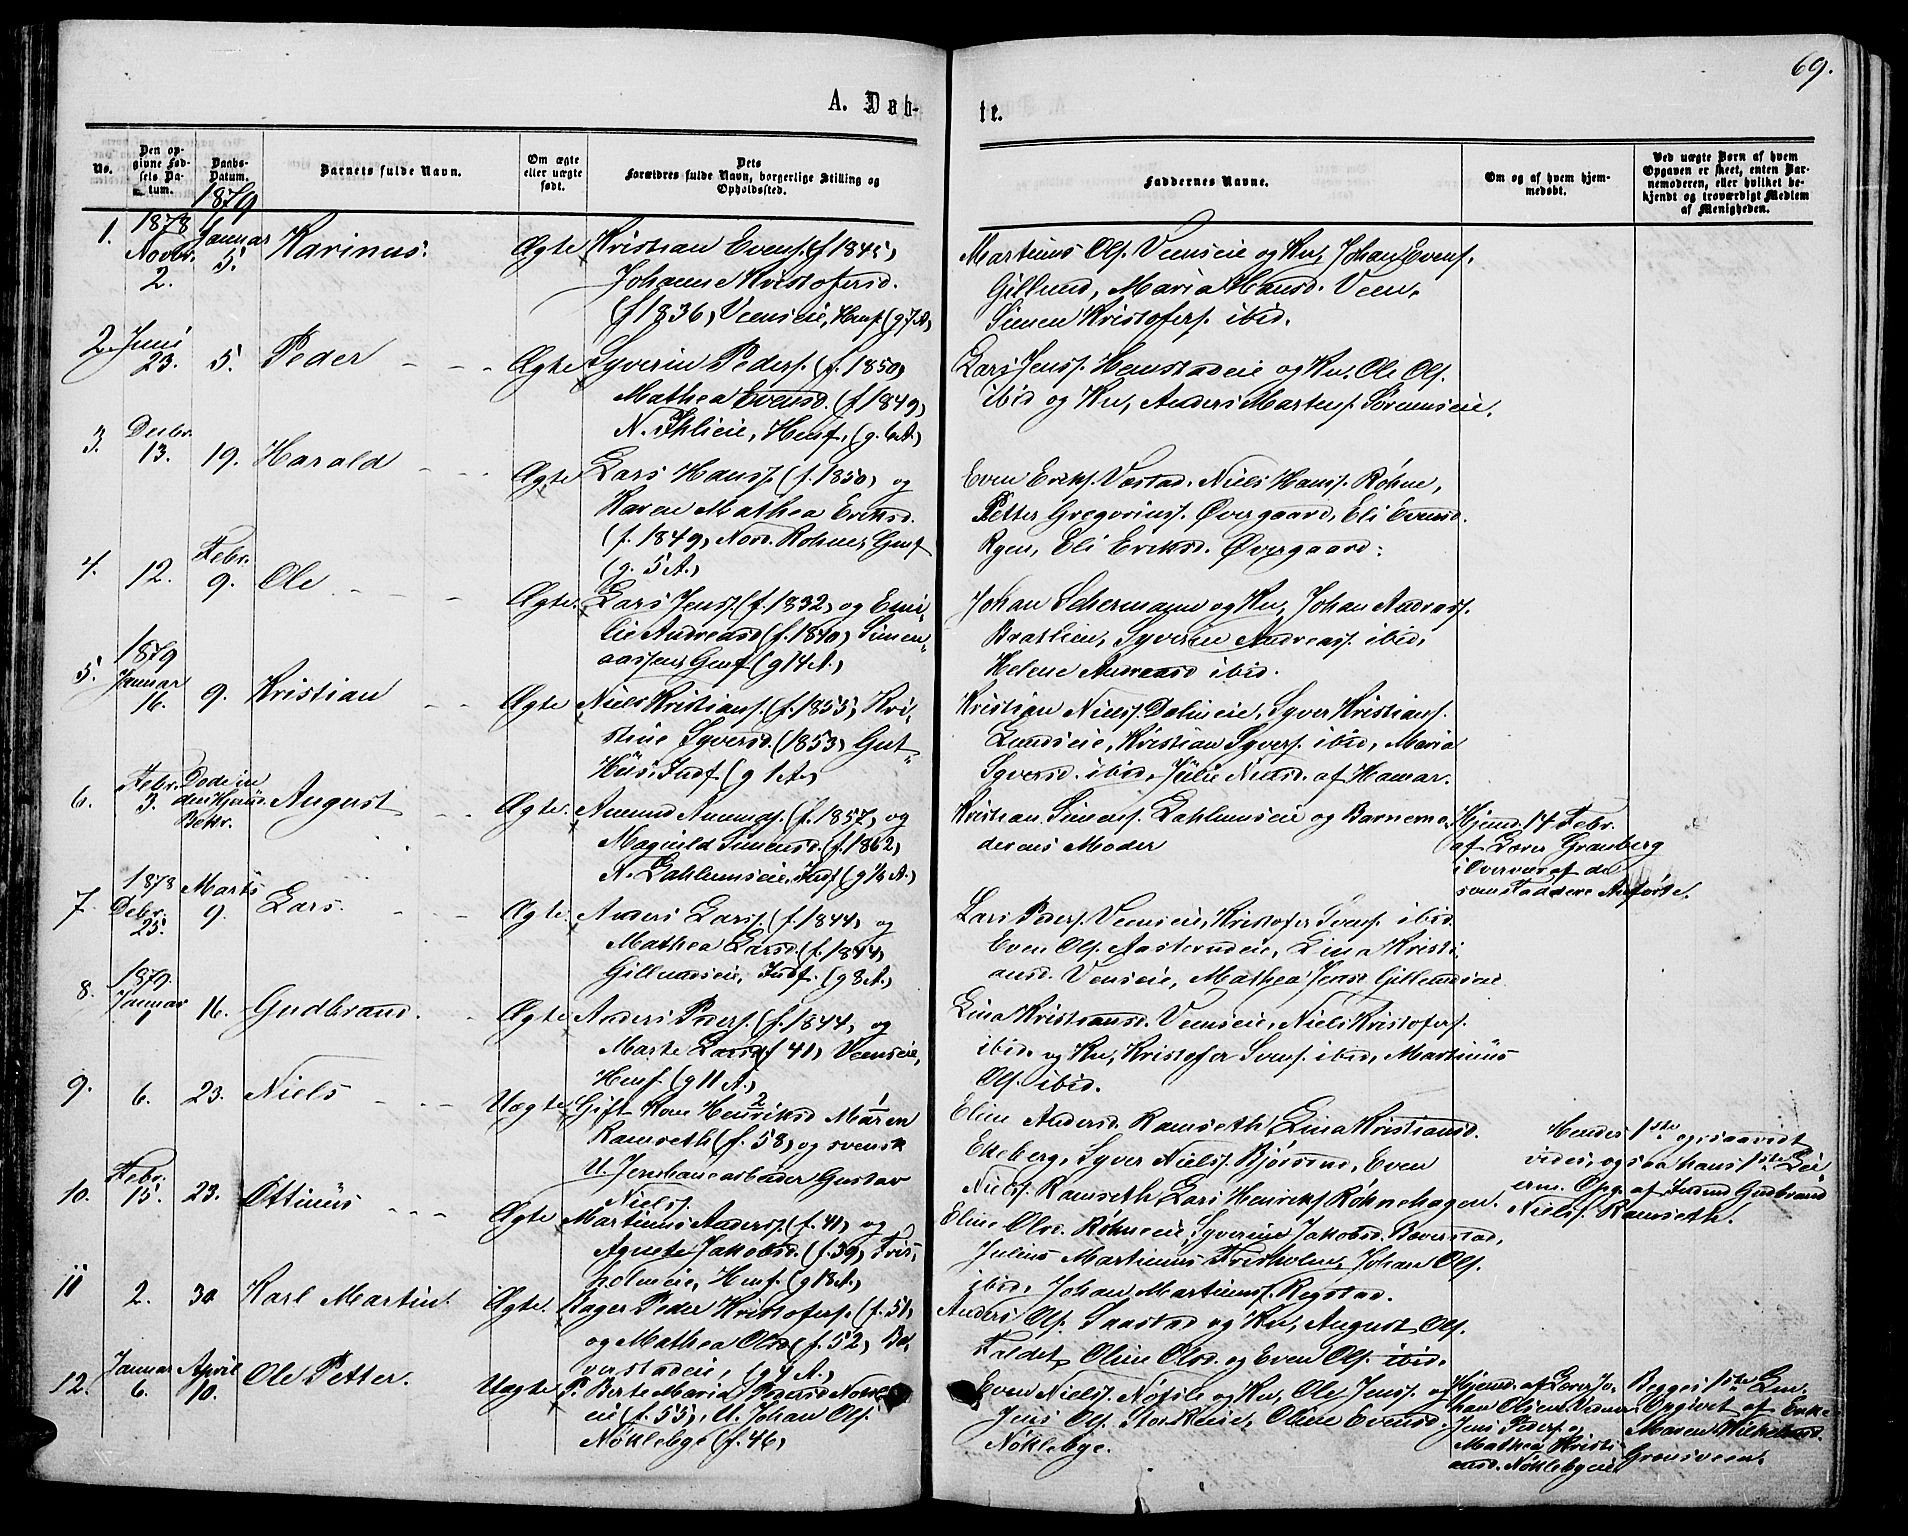 69.
A. Døb-
te.
No.
Den op-
givne Fød-
sels Da-
tum.
Daabs-
Datum.
Barnets fulde Navn.
Om ægte
eller uægte
født.
Dets
Forældres fulde Navn, borgerlige Stilling og
Opholdssted.
Faddernes Navne.
Om og af hvem hjem-
medøbt.
Ved uægte Børn af hvem
Opgaven er skeet, enten Bar-
nemoderen, eller hvilket be-
kjendt og troværdigt Medlem
af Menigheden.
1879
1. 1878 Novbr. 2. Januar 5. Karinus. Ægte Kristian Evens. (f 1845)
Johanne Kristofersd.
(f 1836) Veenseie, Henf. (g 7 A)
Martinus Ols. Veenseie og Kv, Johan Evens.
Gillund, Maria Hansd. Veen,
Simen Kristofers. ibid.
2. Juni 23. 5. Peder Ægte Syverin Peders. (f. 1850)
Mathea Evensd. (f 1849)
N. Ihlseie, Henf. (g. 6 A)
Lars Jens. Hemstadeie og Kv. Ole Ols.
ibid og Kv, Anders Martins. Sørumseie.
3. Decbr. 13. 19. Harald Ægte Lars Hans. (f. 1850) og
Karen Mathea Eriksd.
(f. 1849) Nord. Rohne, Henf
(g. 5 A.)
Even Eriks. Vestad, Niels Hans. Røhne,
Petter Gregorius. Øvergaard, Eli Evensd.
Ryen, Eli Eriksd. Øvergaard.
4. 12. Febr. 9. Ole Ægte. Lars Jens. (f. 1832) og Emi-
lie Andreasd (f. 1840) Simen-
aassen, Henf (g 14 A.)
Johan Schermann og Kv, Johan Andreas.
Bratlien, Syverin Andreas. ibid,
Helene Andreasd ibid.
5. 1879 Januar 16. 9. Kristian Ægte Niels Kristians. (f. 1855) Kri-
stine Syversd. (1853) Gut-
hüs, Indf. (g 1 A.)
Kristian Niels. Dalseie, Syver Kristians.
Lundseie, Kristian Syvers. ibid, Maria
Syversd. ibid, Julie Nielsd. af Hamar.
6. Febr. 3. Døde in den Hjemd. Bekr. August Ægte. Amund Amunds. (f. 1857) og
Magnild Simensd. (f. 1862)
N. Dahlumseie, Indf (g ½ A.)
Kristian Simens. Dahlumseie og Barnemo-
derens Moder
Hjemd. 14 Febr.
af Lærer Granberg
i Overvær af de
som Faddere Anførte.
7. 1878 Debr. 25. Marts 9. Lars. Ægte. Anders Lars. (f. 1844) og
Mathea Larsd (f. 1844)
Gillundseie, Indf. (g 8 A.)
Lars Peders. Veenseie, Kristofer Svens. ibid.
Even Ols. Aasterudeie, Lina Kristi-
ansd. Venseie, Mathea Jensd Gillundseie
8. 1879. Januar 1 16. Gudbrand. Ægte Anders Peders. (f. 1844) og
Marte Larsd (f 41) Veenseie,
Henf. (g 11 A.)
Lina Kristiansd. Veenseie, Niels Kristofers.
ibid. og Kv, Kristofer Svens. ibid, Martinüs
Ols. ibid.
9. 6. 23. Niels Uægte Gift Kone Henriksd Maren
Ramseth (f. 58) og svensk
U. Jernbanearbeider Gustav
Niels.
Eline Andersd. Ramseth, Lina Kristiansd.
Ekeberg, Syver Niels. Bjørsrud, Even
Niels. Ramseth, Lars Henriks. Røhnehagen.
Hendes 1ste og saavidt
vides, ogsaa hans 1ste Lei-
erm. Opg. af Insd Gudbrand
Niels. Ramseth.
10. Febr. 15. 23. Ottinüs Ægte Martinus Anders. (f. 41) og
Agnete Jakobsd. (f. 39) Fris-
holmeie, Henf. (g 18 A.)
Eline Olsd. Røhneeie, Syverine Jakobsd. Bæverstad,
Julius Martinus Frisholm, Johan Ols.
ibid, Johan Martins. Regstad.
11 2. 30 Karl Martin. Ægte. Bager Peder Kristofers. (f. 51)
og Mathea Olsd (f. 52) Bæ-
verstadeie, (g 4 A.)
Anders Ols. Saastad og Kv, August Ols.
Faldet, Oline Olsd. og Even Ols. ibid.
12. Januar 6. April 10. Ole Petter. Uægte P. Berte Maria
eie (f. 55), U. Johan Ols.
Nøklebye (f. 46)
Even Niels. Nøfsle og Kv, Ole Jens. og
Jens Ols. Oline Evensd.
Nøklebye.
Hjemd. af Lærer Jo-
han Olsen Vidner
Jens Peders. og
Mathea Kristi-
ansd. Nøklebyeeie
Begges 1ste Lm.
Opgivet af Enke
Maren
Grønsveen.